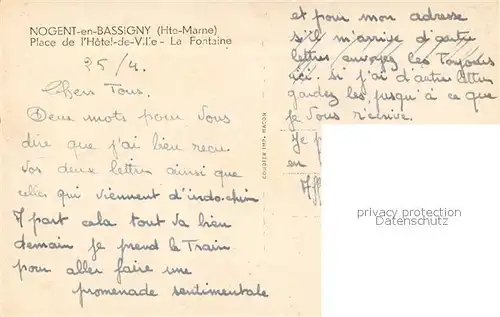 NOGENT-en-BASSIGNY (Hte-Marne)
Place de l'Hôtel-de-Ville - La Fontaine
25/4.
Chers Tous.
Deux mots pour vous
dire que j'ai bien recu
vos deux lettres ainsi que
celles qui viennent d'indo-chine
A part cela tout va bien
demain je prend le Train
pour aller faire une
promenade sentimentale
COURIER IMP. MACON
et pour mon adresse
s'il m'arrive d'autre
lettres envoyez les Toujours
ici. si j'ai d'autre lettres
gardez les jusqu'à ce que
je vous récrive.
Je p
en
Aff
privacy protection
Datenschutz